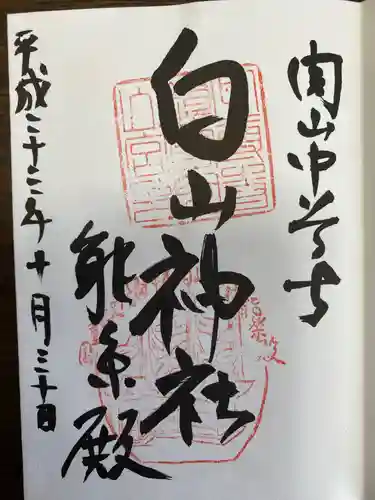 関山中尊寺
白山神社
能楽殿
平成二十二年十月三十日